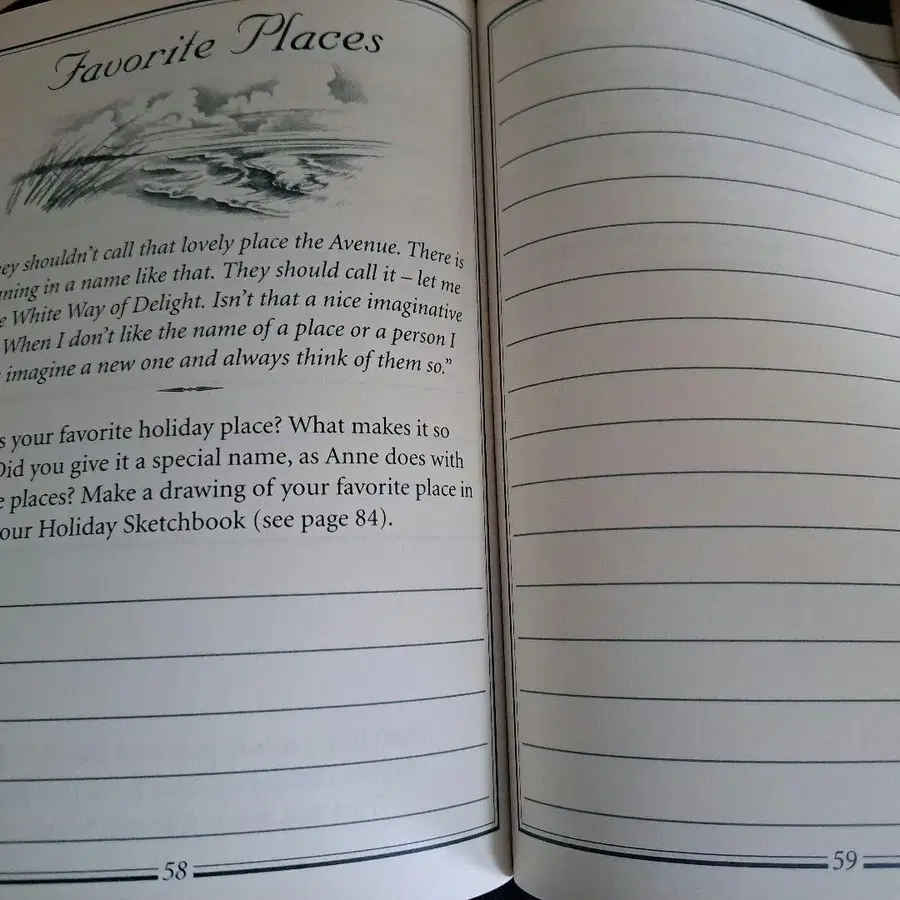 Favorite Places
ey shouldn't call that lovely place the Avenue. There is
ning in a name like that. They should call it – let me
e White Way of Delight. Isn't that a nice imaginative
When I don't like the name of a place or a person I
imagine a new one and always think of them so."
s your favorite holiday place? What makes it so
Did you give it a special name, as Anne does with
e places? Make a drawing of your favorite place in
our Holiday Sketchbook (see page 84).
58
59